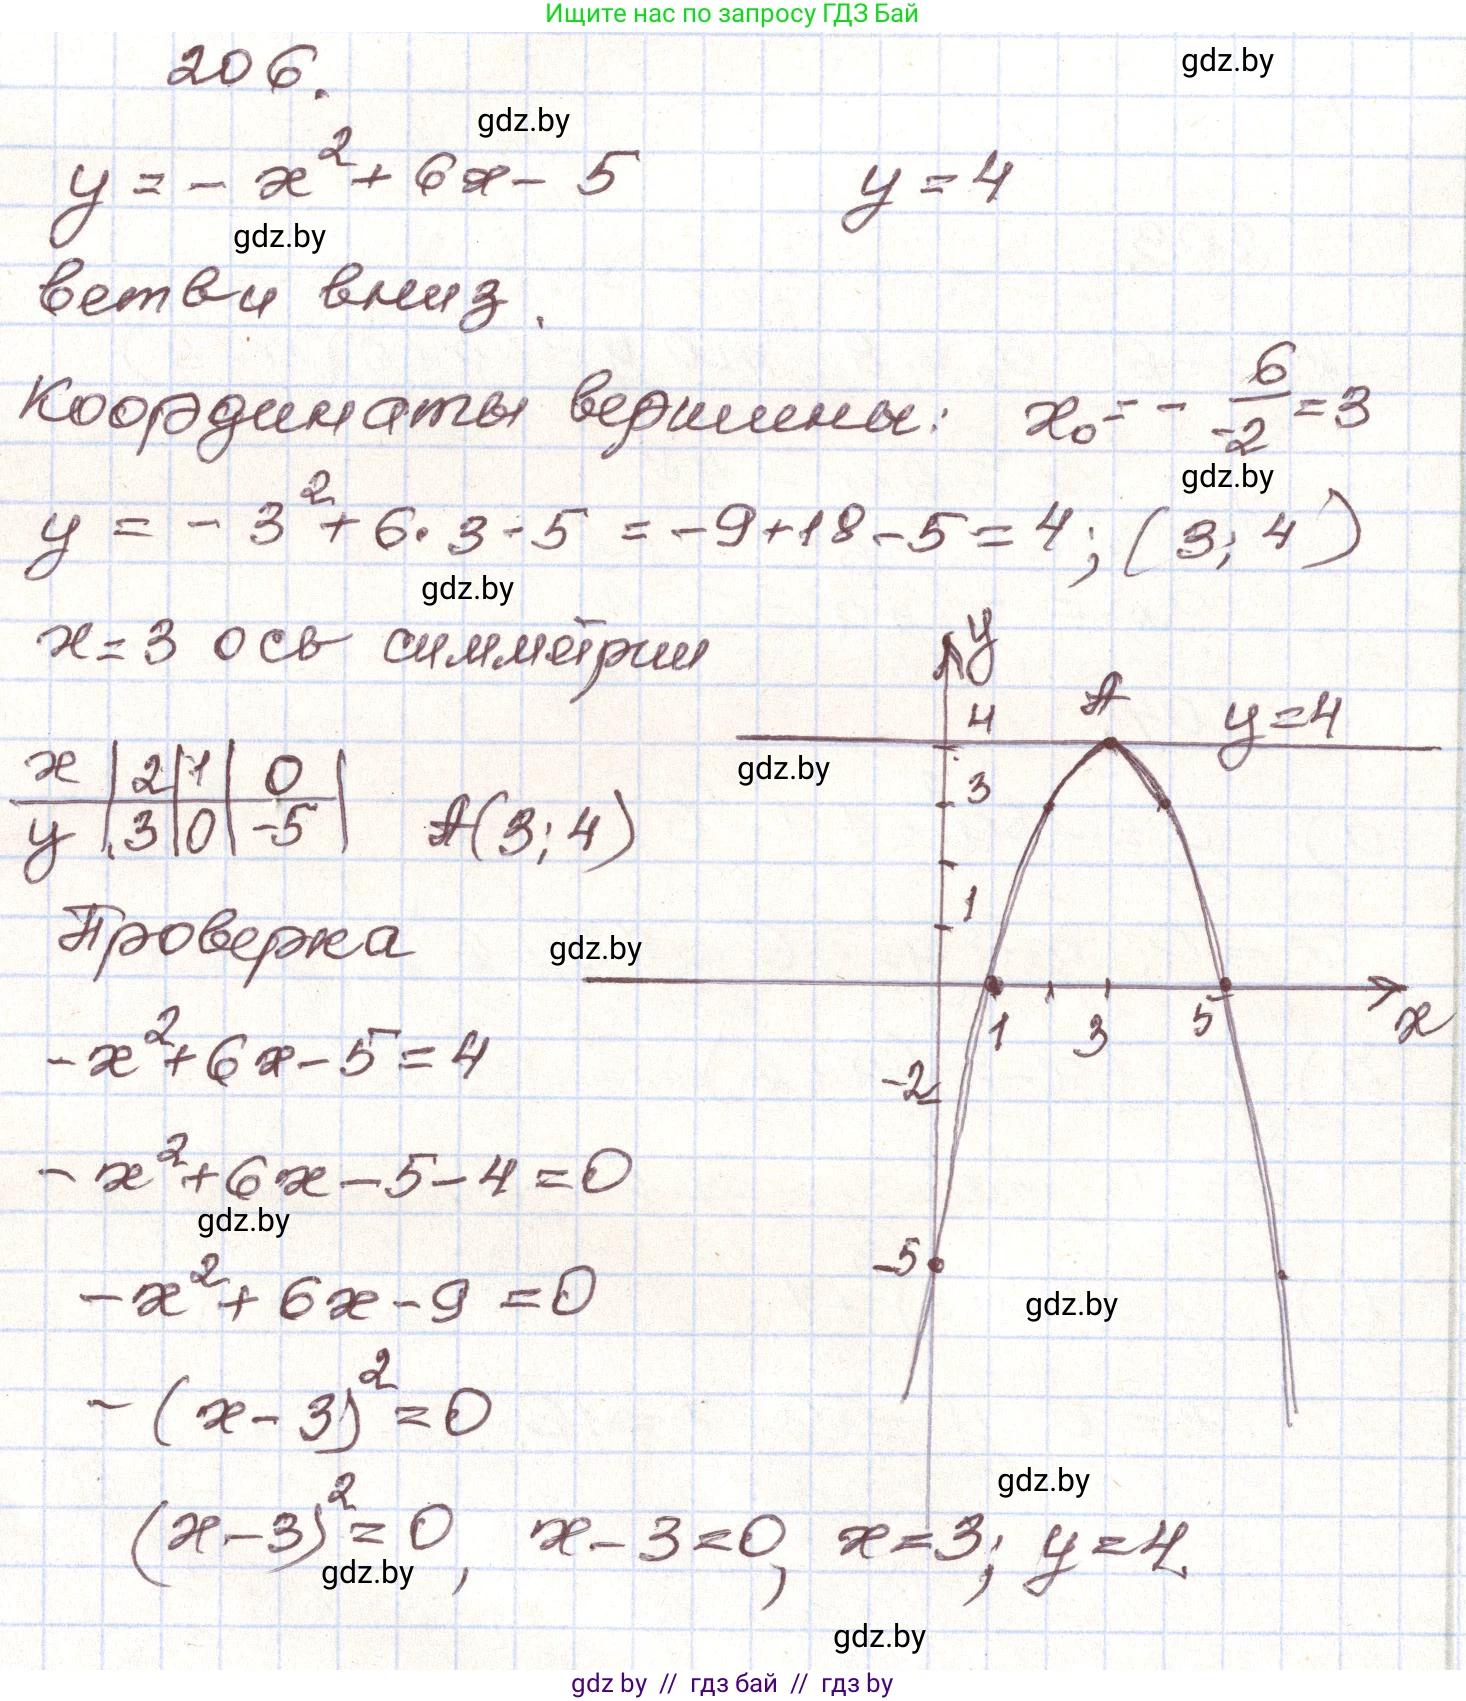 Ищите нас по запросу ГДЗ Бай
206.
gdz.by
gdz.by
y = - x² + 6x - 5
y = 4
gdz.by
ветви вниз.
Координаты вершины: x₀ = - 6/-2 = 3
gdz.by
y = - 3² + 6·3 - 5 = -9+18-5 = 4; (3; 4)
gdz.by
x=3 ось симметрии
x | 2 | 1 | 0 |
y | 3 | 0 | -5 |
A(3; 4)
y
A
4
y=4
gdz.by
3
1
Проверка
gdz.by
1 3 5 x
-2
-5
-x²+6x-5=4
-x²+6x-5-4=0
gdz.by
-x²+6x-9=0
gdz.by
-(x-3)²=0
gdz.by
(x-3)²=0, x-3=0, x=3; y=4.
gdz.by
gdz.by
gdz by // гдз бай // гдз by